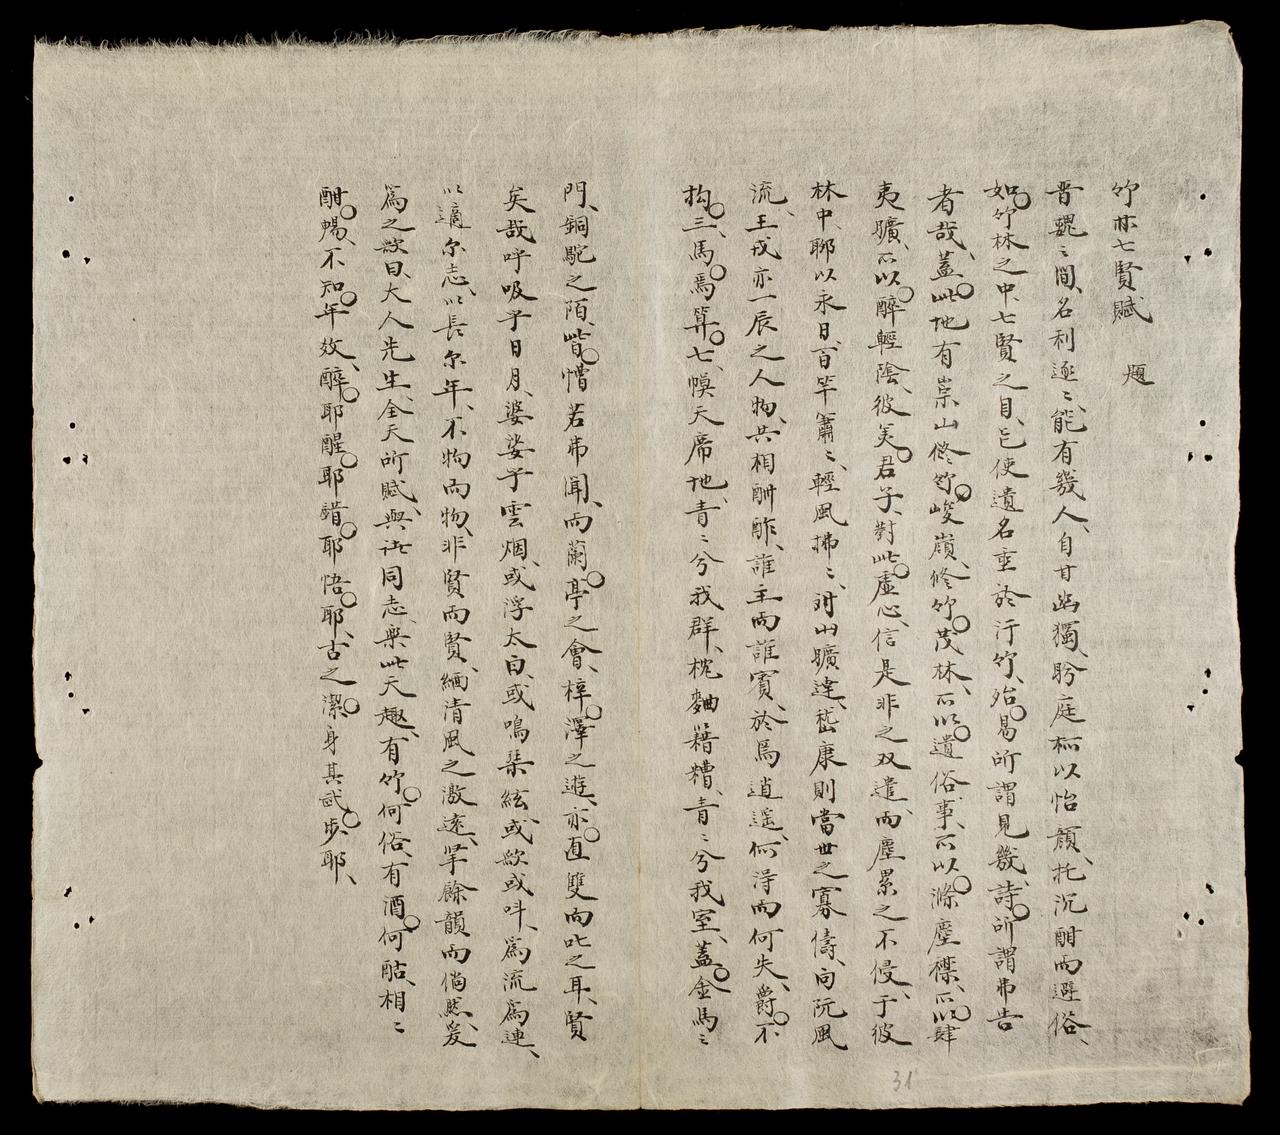 竹林七賢賦　題
晋魏〻間、名利逐〻、能有幾人、自甘幽獨、盼庭柯以怡顔、托沉酣而避俗、
如竹林之中、七賢之目、㠯使遺名垂於汗竹、殆易所謂見幾、詩所謂弗告
者哉、蓋此地有崇山俢竹、峻嶺俢竹、茂林、所以遺俗事、所以滌塵襟、所以肆
夷曠、所以醉輕陰、彼美君子、對此虛心、信是非之双遣、而塵累之不侵、于彼
林中、聊以永日、百竿簫〻、輕風拂〻、對山曠達、嵇康則當世之寡儔、向阮風
流、王戎亦一辰之人物、共相酬酢、誰主而誰賓、於焉逍遥、何淂而何失、爵不
拘三、馬焉算七、幙天席地、青〻兮我群、枕麯藉糟、青〻兮我室、蓋金馬〻
門、銅駝之陌、皆懵若弗聞、而蘭亭之會、梓澤之遊、亦直雙而叱之耳、賢
矣哉呼吸乎日月、婆娑乎雲烟、或浮太白、或鳴琹絃、或歌或呌、爲流爲連、
以適尔志、以長尔年、不物而物、非賢而賢、緬清風之激遠、挐餘韻而偹然、爰
爲之歌曰、大人先生、全天所賦、與訨同志、樂此天趣、有竹何俗、有酒何酤、相〻
酣暢、不知年效、醉耶醒耶、錯耶悟耶、古之潔身其武步耶、
31